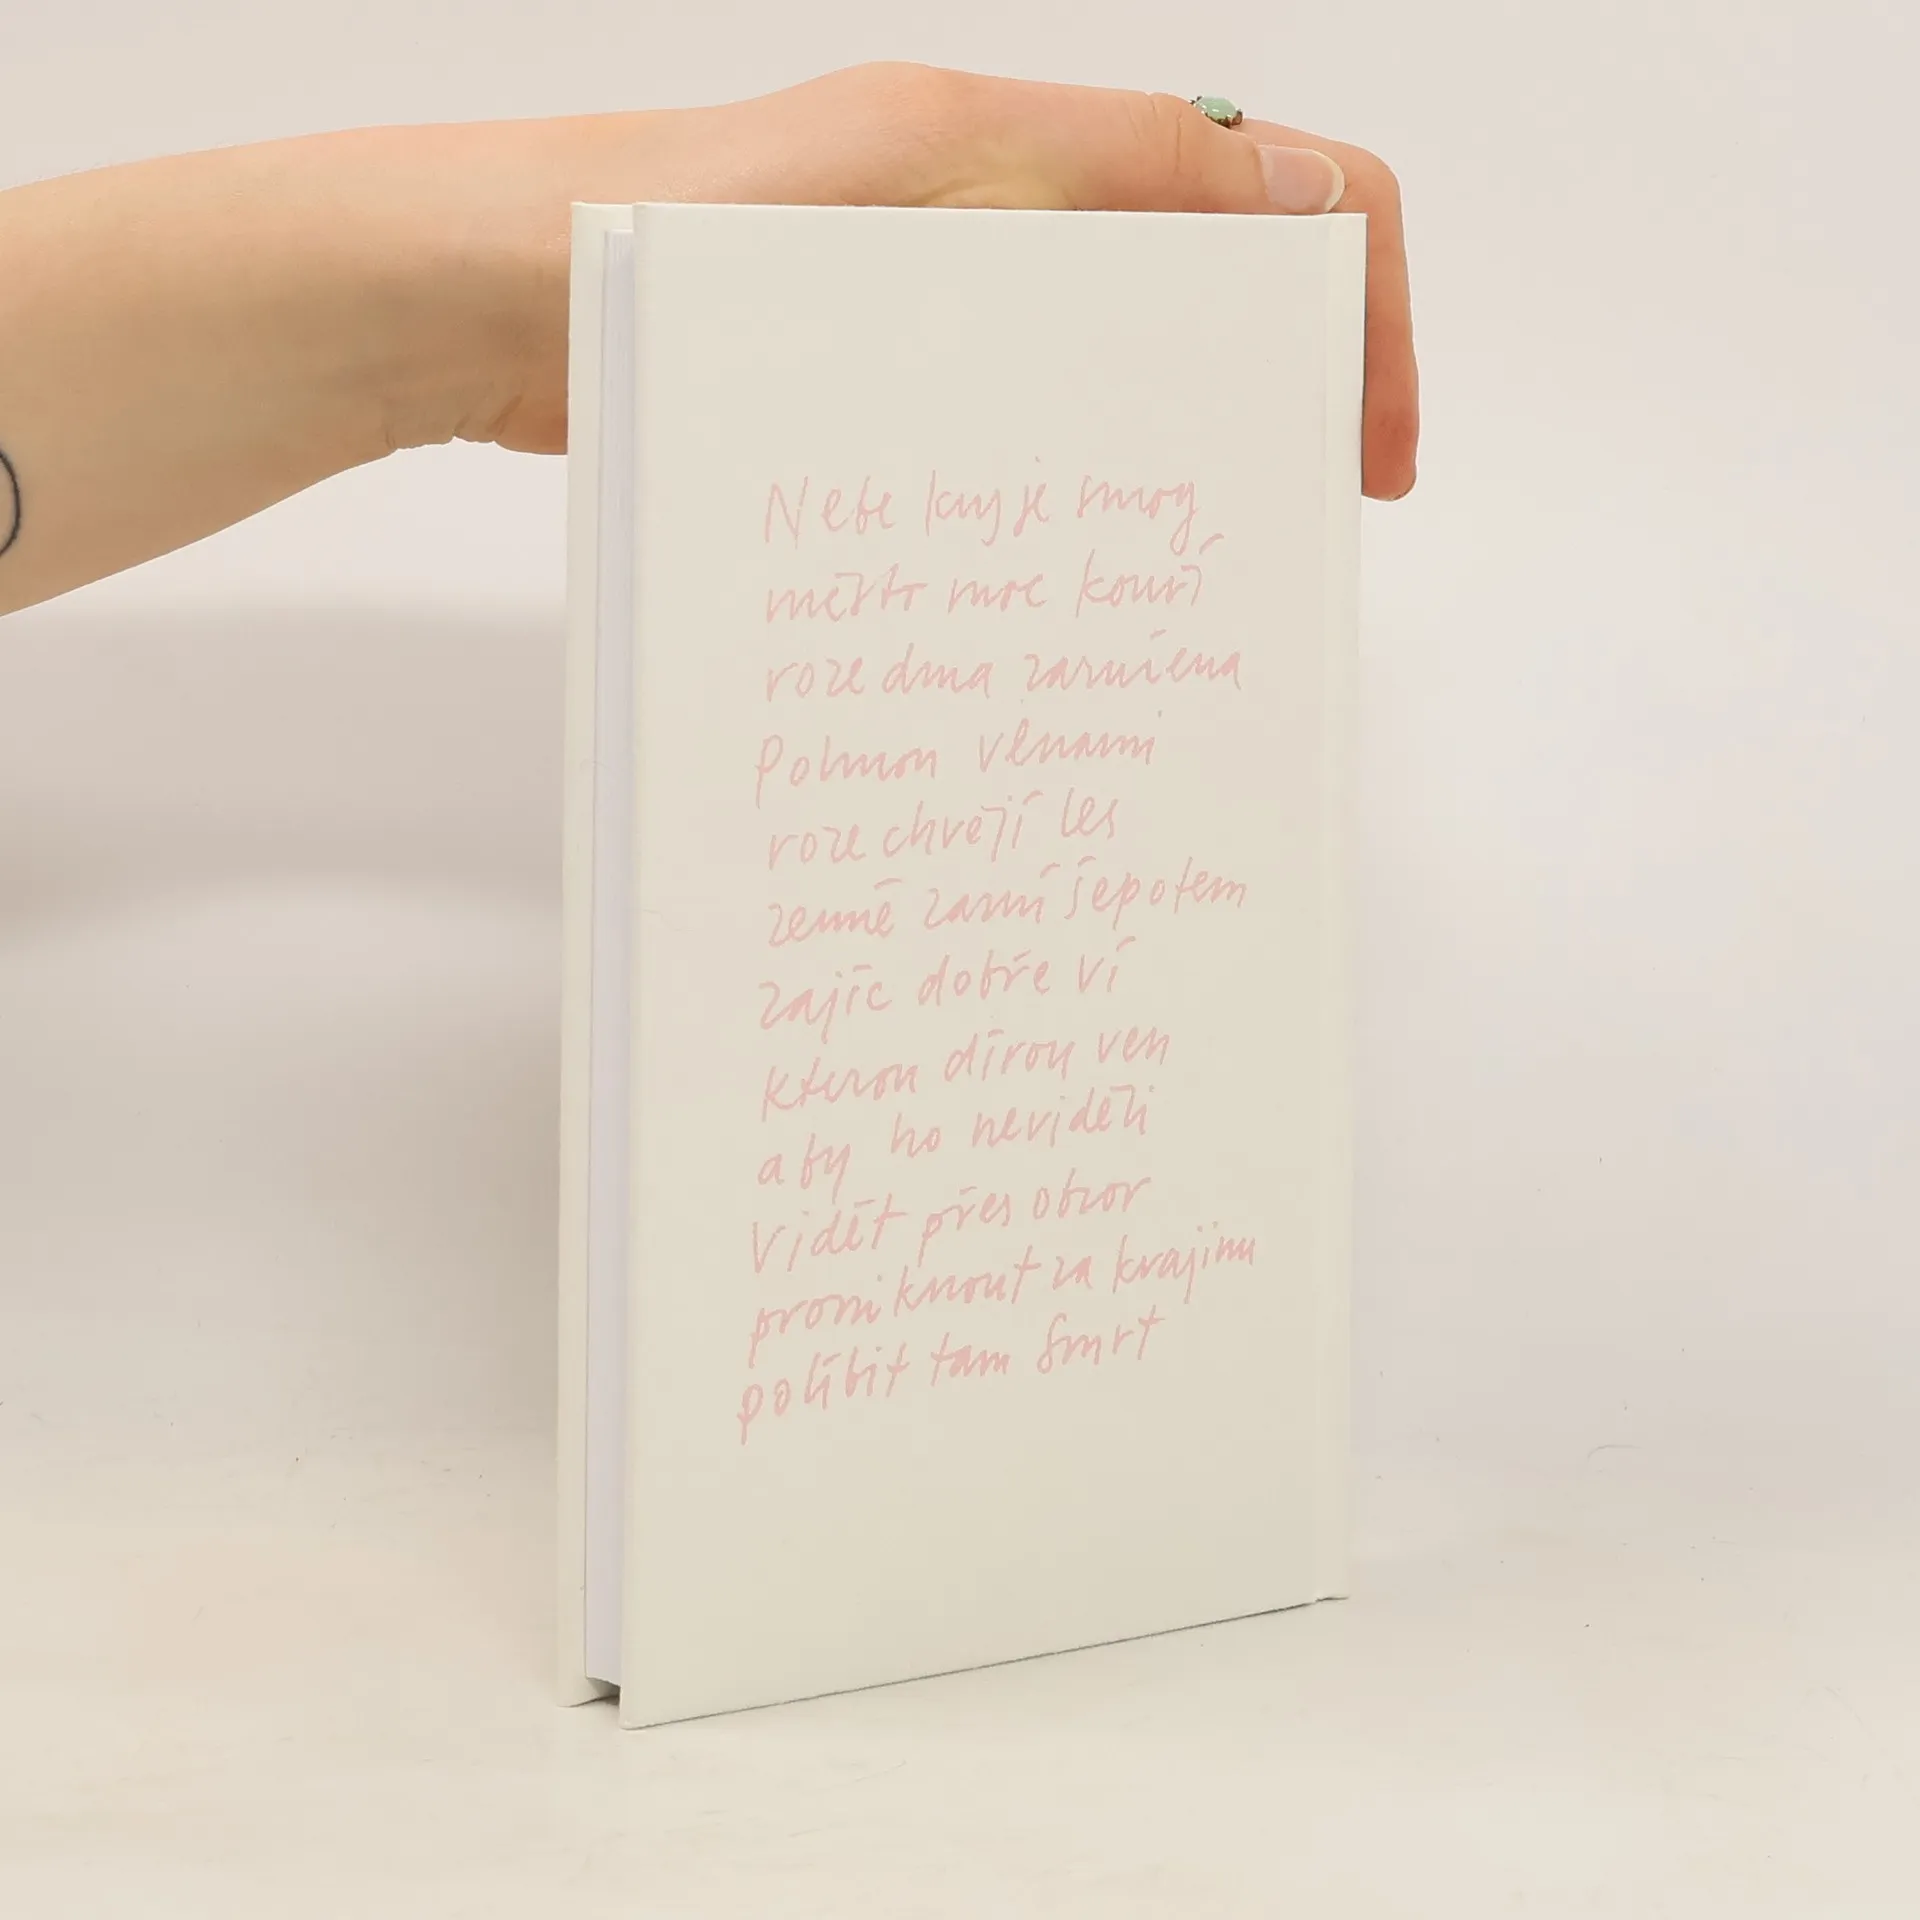 Nebe kryje smog
město moe kouří
rozedma zaručena
Pohnou vlnami
rozechvějí les
země zazní šepotem
zajíc dobře ví
kterou dírou ven
aby ho neviděli
Vidět přes obzor
proniknout za krajinu
políbit tam Smrt